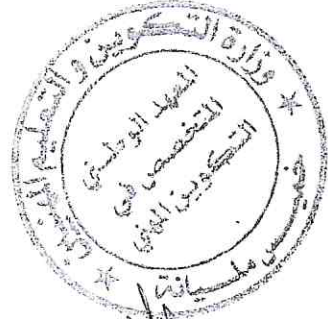 وزارة التكوين و التعليم المهنيين
المعهد الوطني
المتخصص في
التكوين المهني
خميس مليانة